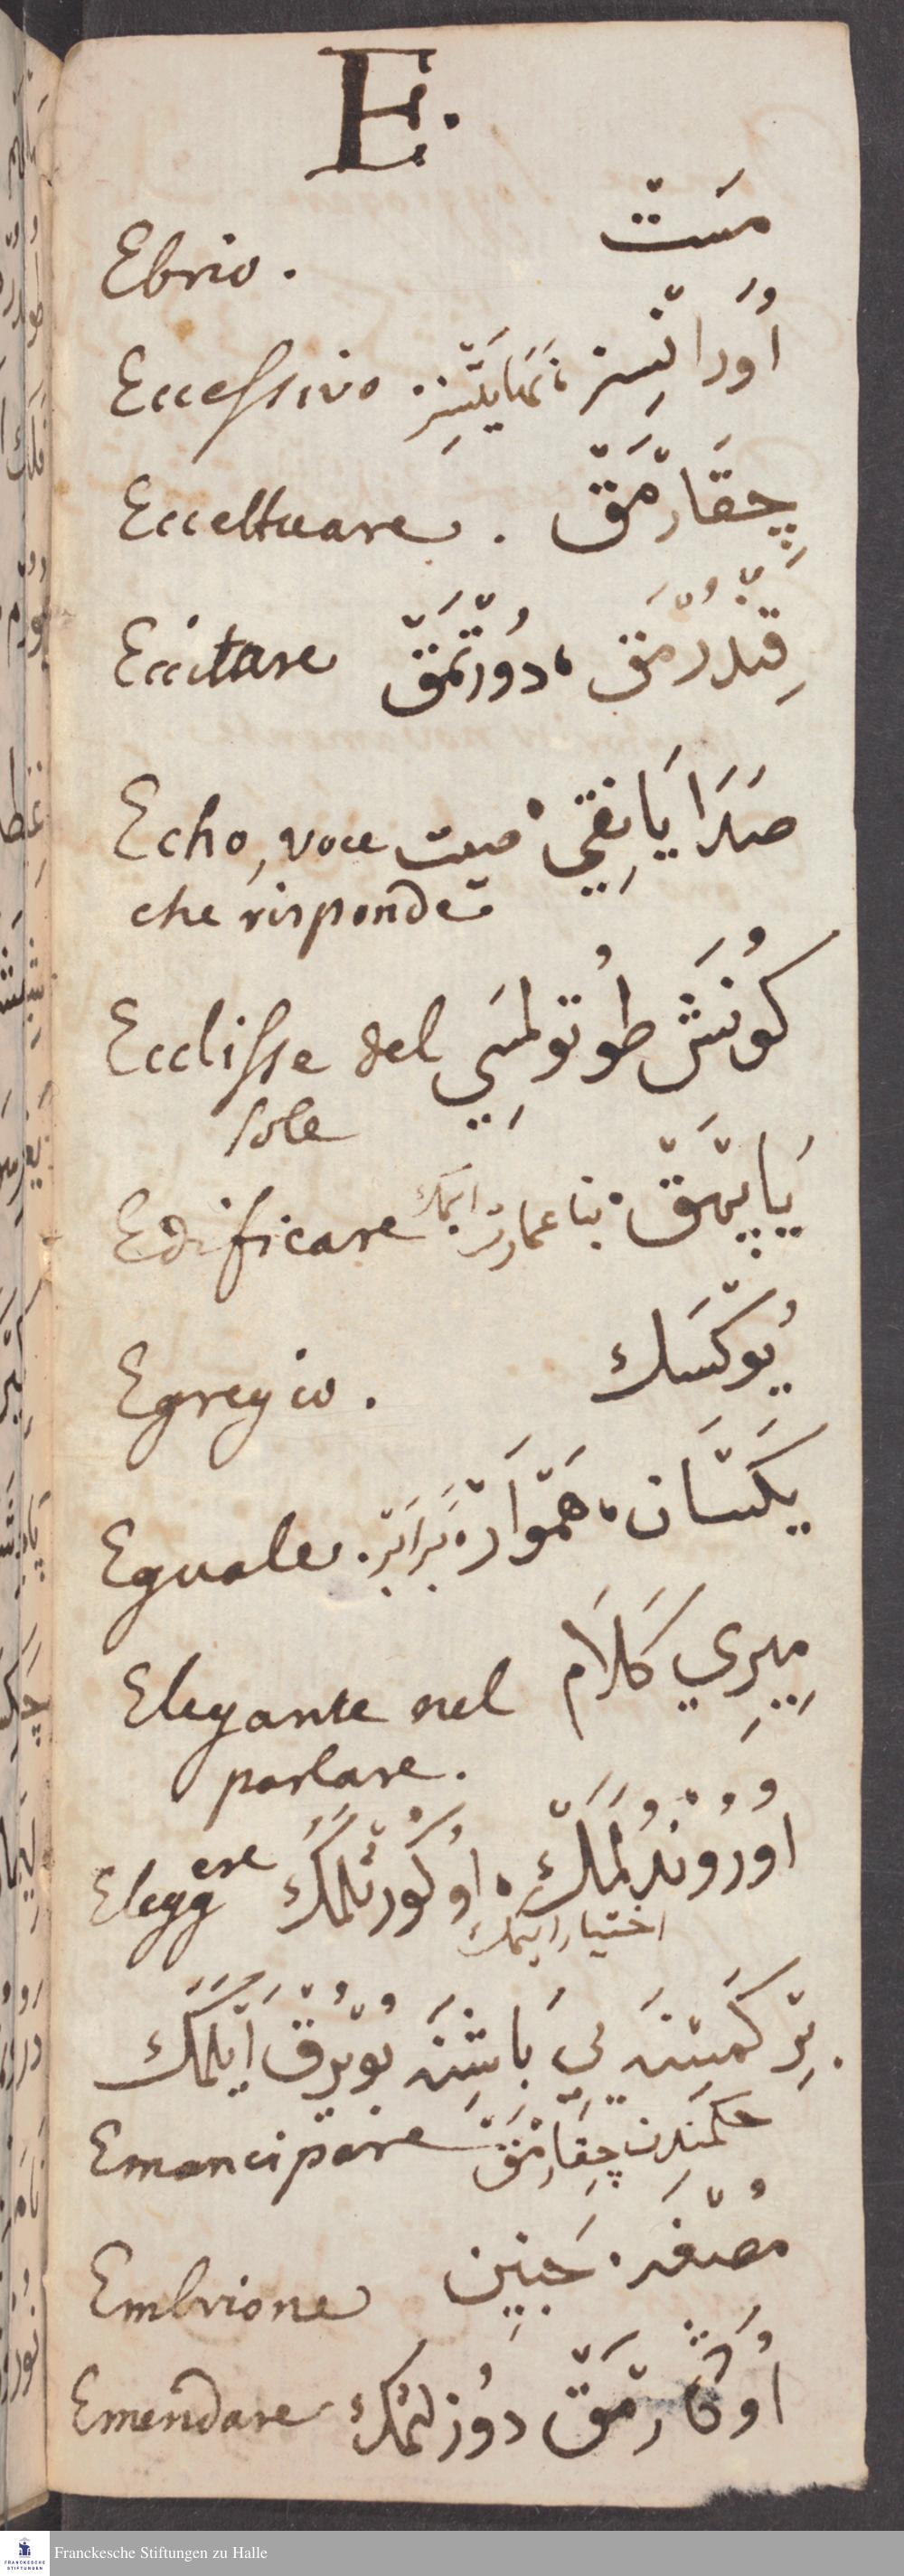 E.
Ebrio. مَسْتْ
Eccessivo اُورَانْسِزْ، نَهَايَتْسِزْ.
Eccettuare. چِقَارْمَقْ
Eccitare قِنْدُرْمَق، دُورْتْمَقْ
Echo, voce صَدَا يَانِقِي، صيت
che risponde
Ecclisse del كُونَش طُوتُولمَسِي
sole
Edificare يَاپْمَقْ، بنا عمارت ايمك
Egregio. يُوكْسَك
Eguale. يَكْسَان، هَمْوَارْ، بَرَابَرْ.
Elegante nel مِيرِي كَلَام
parlare.
Eleggere اُورُونْدُلَمَكْ، اوُكُورْتْلَمَك
اختيار ايتمك
بِرْ كَمْسَنَه يِي بَاشِنَه بُويْرُقْ اَيْلَمَك.
Emancipare حكمندن چِقَارْمَقْ
Embrione مُضْغَه. جَنِين
Emendare اُوكَارْمَقْ دُوزلتمَك
Franckesche Stiftungen zu Halle